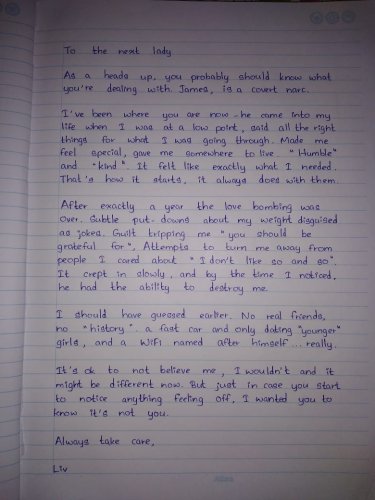 To the next lady
As a heads up, you probably should know what
you're dealing with. James, is a covert narc.
I've been where you are now - he came into my
life when I was at a low point, said all the right
things for what I was going through. Made me
feel special, gave me somewhere to live. "Humble"
and "kind". It felt like exactly what I needed.
That's how it starts, it always does with them.
After exactly a year the love bombing was
over. Subtle put-downs about my weight disguised
as jokes. Guilt tripping me "you should be
grateful for", Attempts to turn me away from
people I cared about "I don't like so and so".
It crept in slowly, and by the time I noticed,
he had the ability to destroy me.
I should have guessed earlier. No real friends,
no "history". a fast car and only dating "younger"
girls, and a WiFi named after himself... really.
It's ok to not believe me, I wouldn't and it
might be different now. But just in case you start
to notice anything feeling off, I wanted you to
know it's not you.
Always take care,
Liv